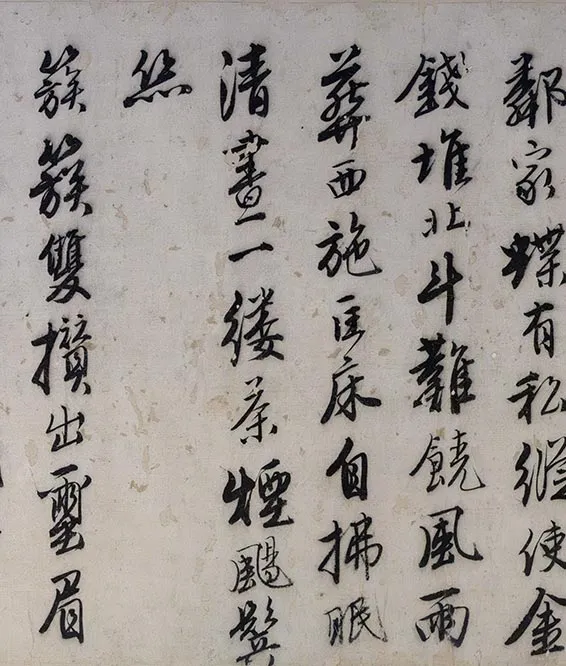 鄰家蝶有私縱使金
錢堆北斗難饒風雨
葬西施匡床自拂眠
清晝一縷茶煙颺鬢
絲
簇簇雙攢出繭眉